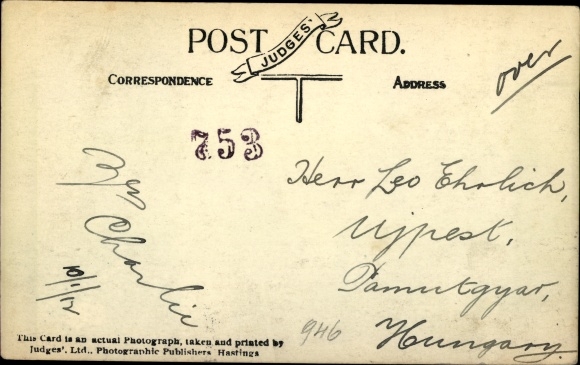 POST CARD.
JUDGES'
CORRESPONDENCE
ADDRESS
over
753
Charlie
10/1/12
Herr Leo Ehrlich,
Ujpest,
Pamutgyar,
Hungary.
946
This Card is an actual Photograph, taken and printed by
Judges', Ltd., Photographic Publishers Hastings